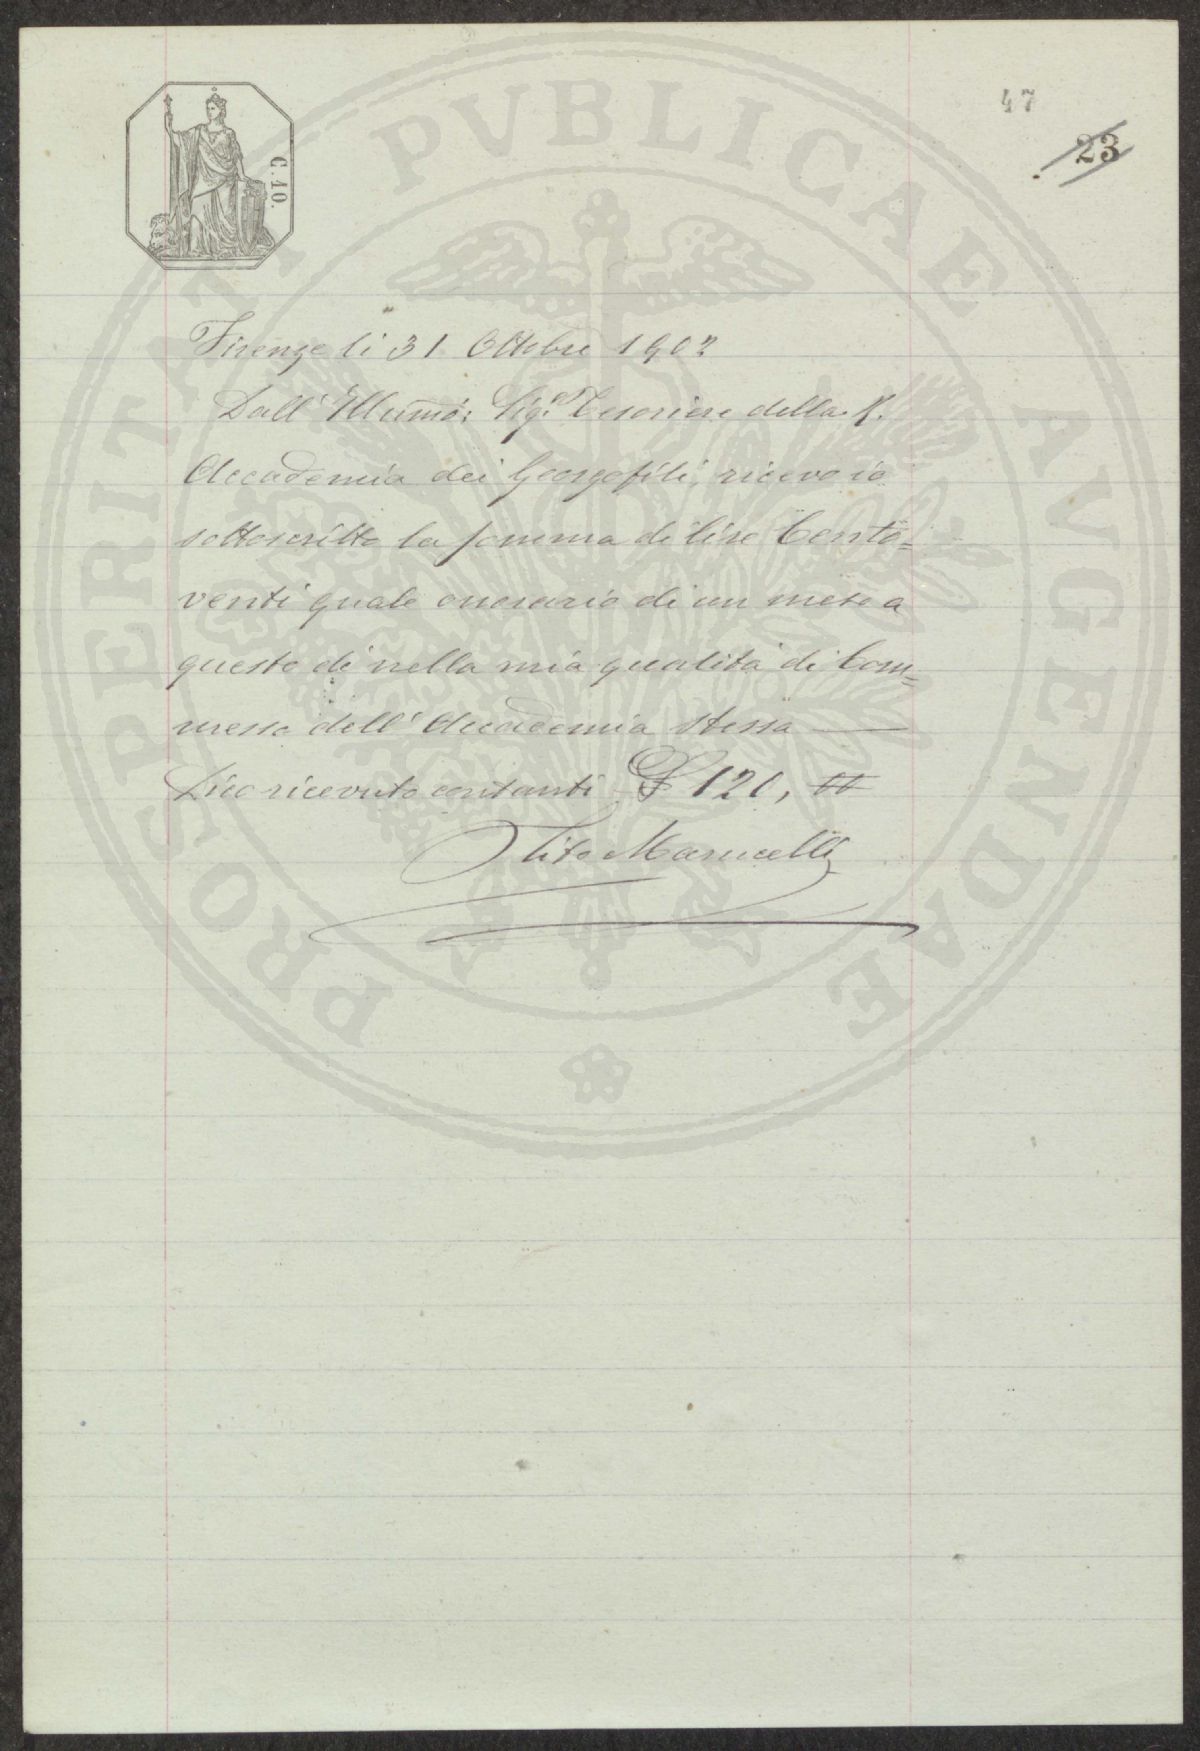 47
23
C. 10.
PROSPERITATI PVBLICAE AVGENDAE
Firenze li 31 Ottobre 1902
Dall' Illumō: Sigr Tesoriere della R.
Accademia dei Georgofili, ricevo io
sottoscritto la somma di lire Cento=
venti quale onorario di un mese a
questo dì nella mia qualità di Com=
messo dell' Accademia stessa
Dico ricevuto contanti £ 120,
Tito Marucelli